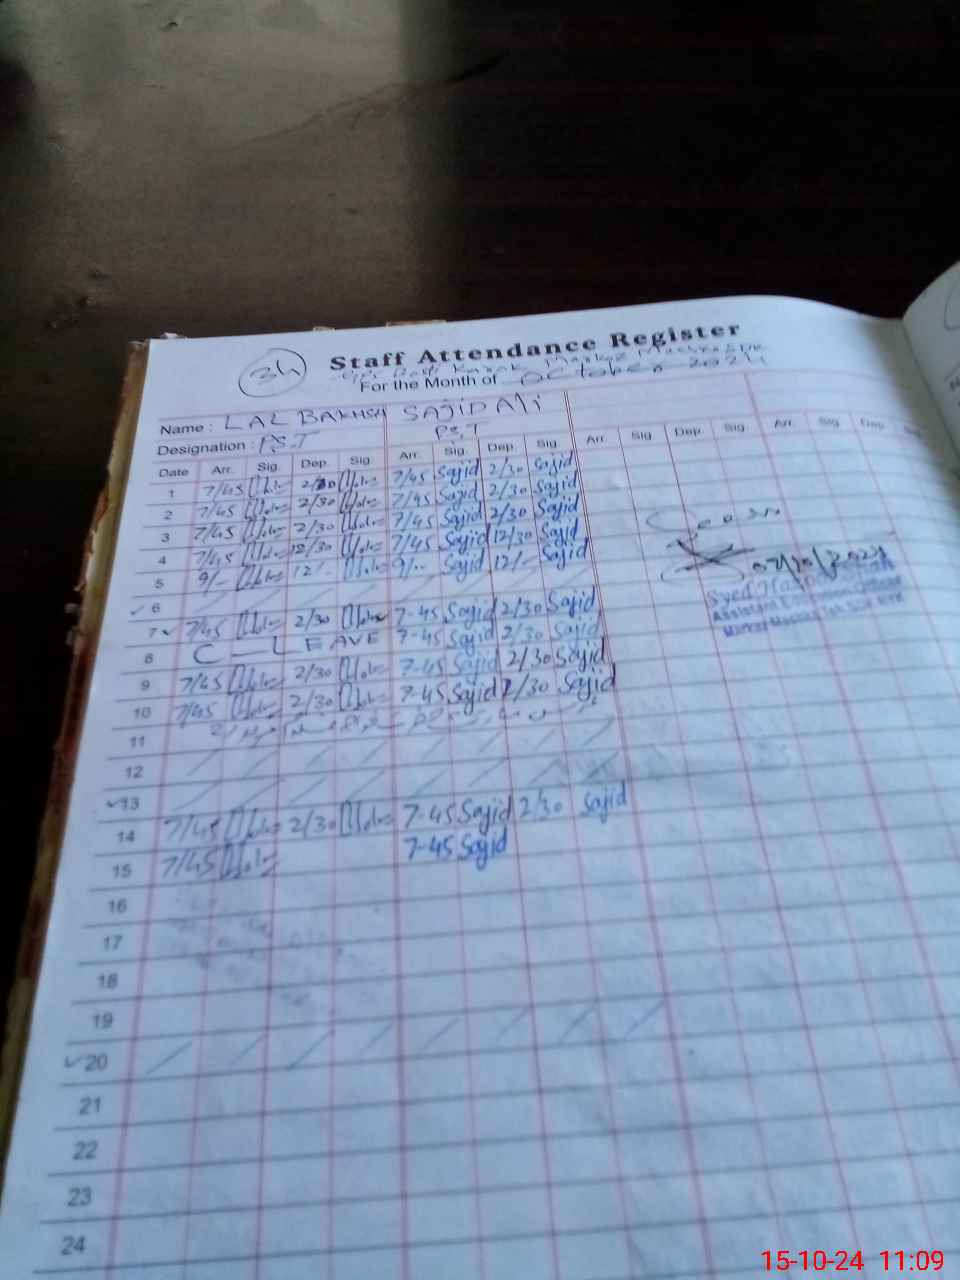 34
Staff Attendance Register
For the Month of October 2024
Name : LAL BAKHSH SAJID Ali
Designation : P.S.T P.S.T
Date Arr. Sig. Dep. Sig Arr. Sig. Dep Sig. Arr. Sig Dep. Sig Arr. Sig. Dep.
1 7/45 2/30 7/45 Sajid 2/30 Sajid
2 7/45 2/30 7/45 Sajid 2/30 Sajid
3 7/45 2/30 7/45 Sajid 2/30 Sajid
4 7/45 12/30 7/45 Sajid 12/30 Sajid
5 9/- 12/- 9/- Sajid 12/- Sajid
6
7 7/45 2/30 7-45 Sajid 2/30 Sajid
8 C-LEAVE 7-45 Sajid 2/30 Sajid
9 7/45 2/30 7-45 Sajid 2/30 Sajid
10 7/45 2/30 7-45 Sajid 2/30 Sajid
11
12
13
14 7/45 2/30 7-45 Sajid 2/30 Sajid
15 7/45 7-45 Sajid
16
17
18
19
20
21
22
23
24
Syed
Assistant Education Officer
15-10-24 11:09